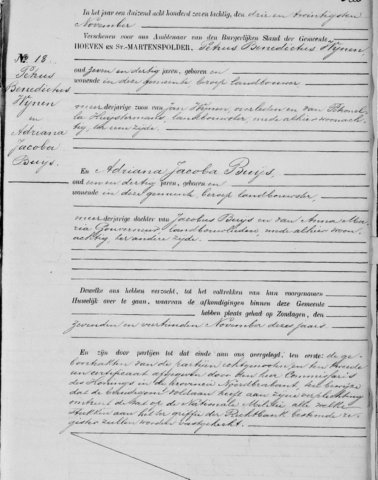 In het jaar een duizend acht honderd zeven tachtig, den drie en twintigsten
November
Verschenen voor ons Ambtenaar van den Burgerlijken Stand der Gemeente
HOEVEN EN ST-MARTENSPOLDER, Petrus Benedictus Wijnen
No 18.
Petrus
Benedictus
Wijnen
en
Adriana
Jacoba
Buijs.
oud zeven en dertig jaren, geboren en
wonende in deze gemeente beroep landbouwer
meerderjarige zoon van Jan Wijnen, overleden en van
landbouwster, mede alhier woonach
tig, ter eene zijde.
En Adriana Jacoba Buijs,
oud een en dertig jaren, geboren en
wonende in deze gemeente beroep landbouwster,
meerderjarige dochter van Jacobus Buijs en van Anna Ma
ria landbouwlieden, mede alhier woon
achtig, ter andere zijde.
Dewelke ons hebben verzocht, tot het voltrekken van hun voorgenomen
Huwelijk over te gaan, waarvan de afkondigingen binnen deze Gemeente
hebben plaats gehad op Zondagen, den
zevenden en veertienden November dezes jaars
En zijn door partijen tot dat einde aan ons overgelegd, ten eerste: de ge
boorteakten van de partijen echtgenooten en ten tweede
een certificaat afgegeven door den heer Commissaris
des Konings in de provincie Noordbrabant, ten bewijze
dat de bruidegom voldaan heeft aan zijne verplichting
omtrent de Nationale Militie alle welke
stukken aan het ter griffie der Rechtbank bestemde re
gister zullen worden vastgehecht.